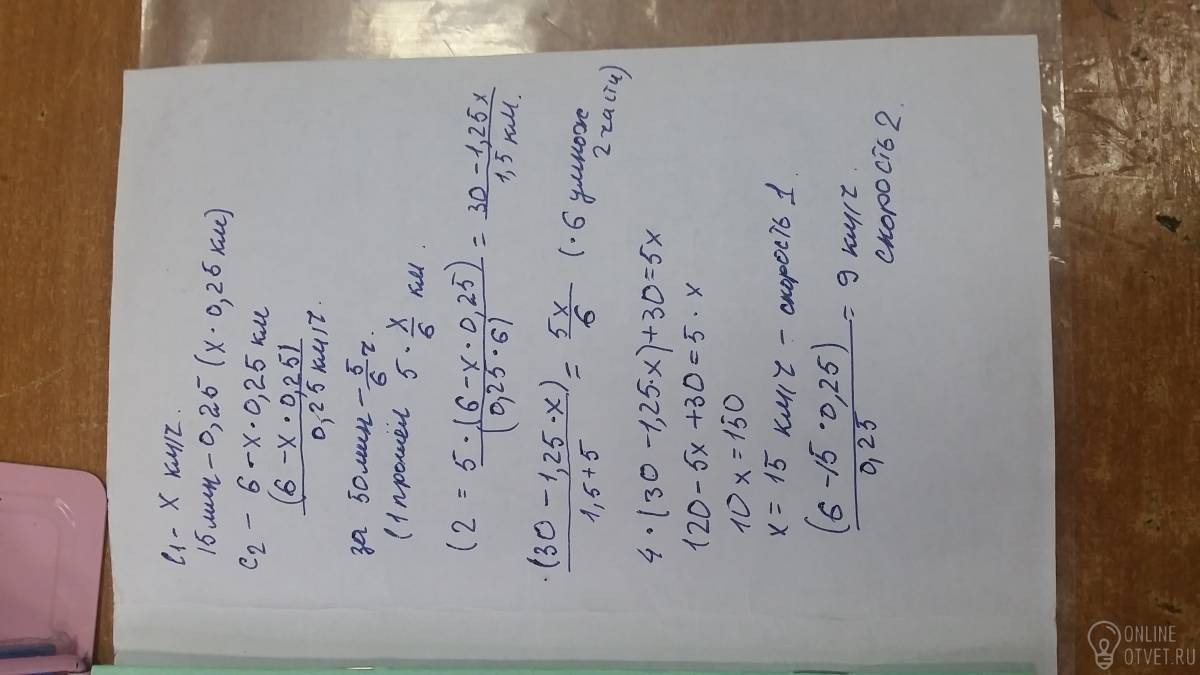 C1 - X км/ч.
15 мин - 0,25 (X · 0,25 км)
C2 - 6 - X · 0,25 км
(6 - X · 0,25)
0,25 км/ч.
за 50 мин - 5/6 ч.
(1 промён 5 · X/6 км.
(2 = 5·(6 - X · 0,25)/(0,25 · 6) = 30 - 1,25X/1,5 км.
·(30 - 1,25 · X)/1,5+5 = 5X/6 (· 6 умнож
2 части)
4 · (30 - 1,25·X)+30=5X
120 - 5X +30=5 · X
10X = 150
X = 15 км/ч - скорость 1.
(6 - 15 · 0,25)/0,25 = 9 км/ч.
скорость 2.
ONLINE
OTVET.RU